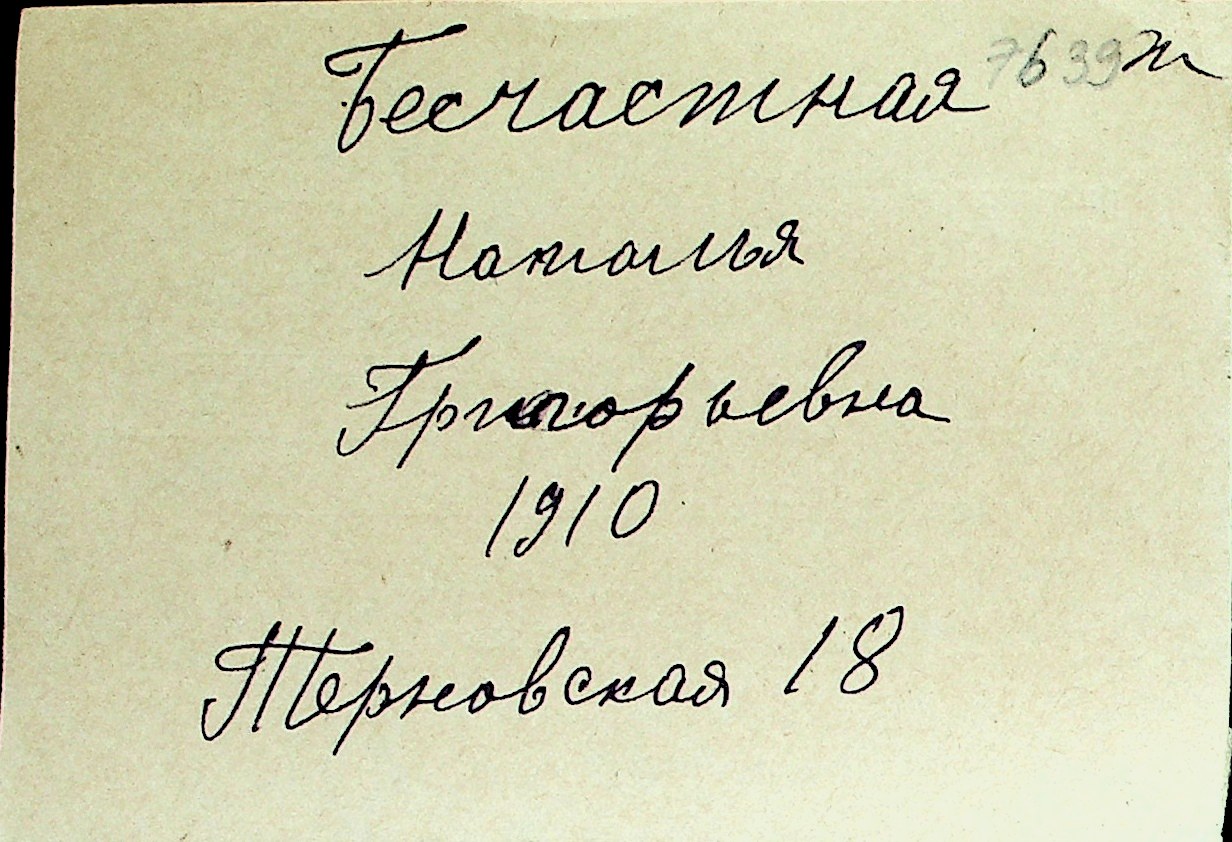 Бесчастная 7639 ж
Наталья
Григорьевна
1910
Терновская 18